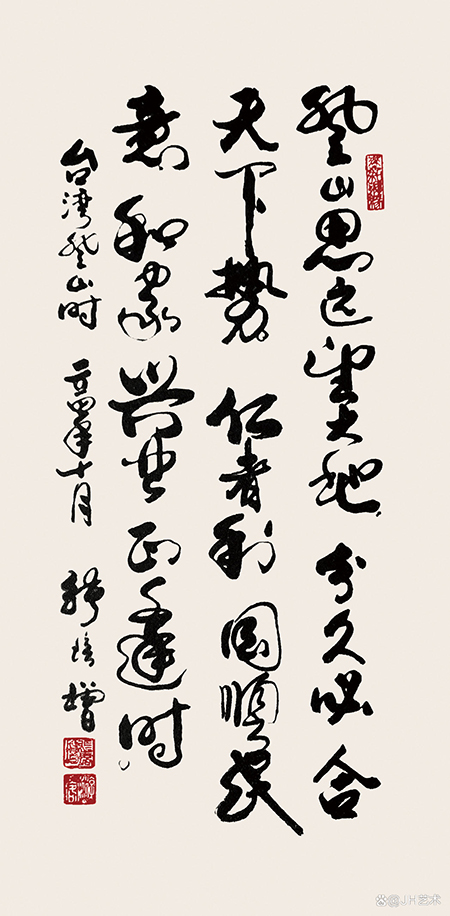 登山思远望大地 分久必合
天下势 仁者利国顺民
意 和家兴业正逢时
台湾登山时 二〇一四年十月
@J.H艺术